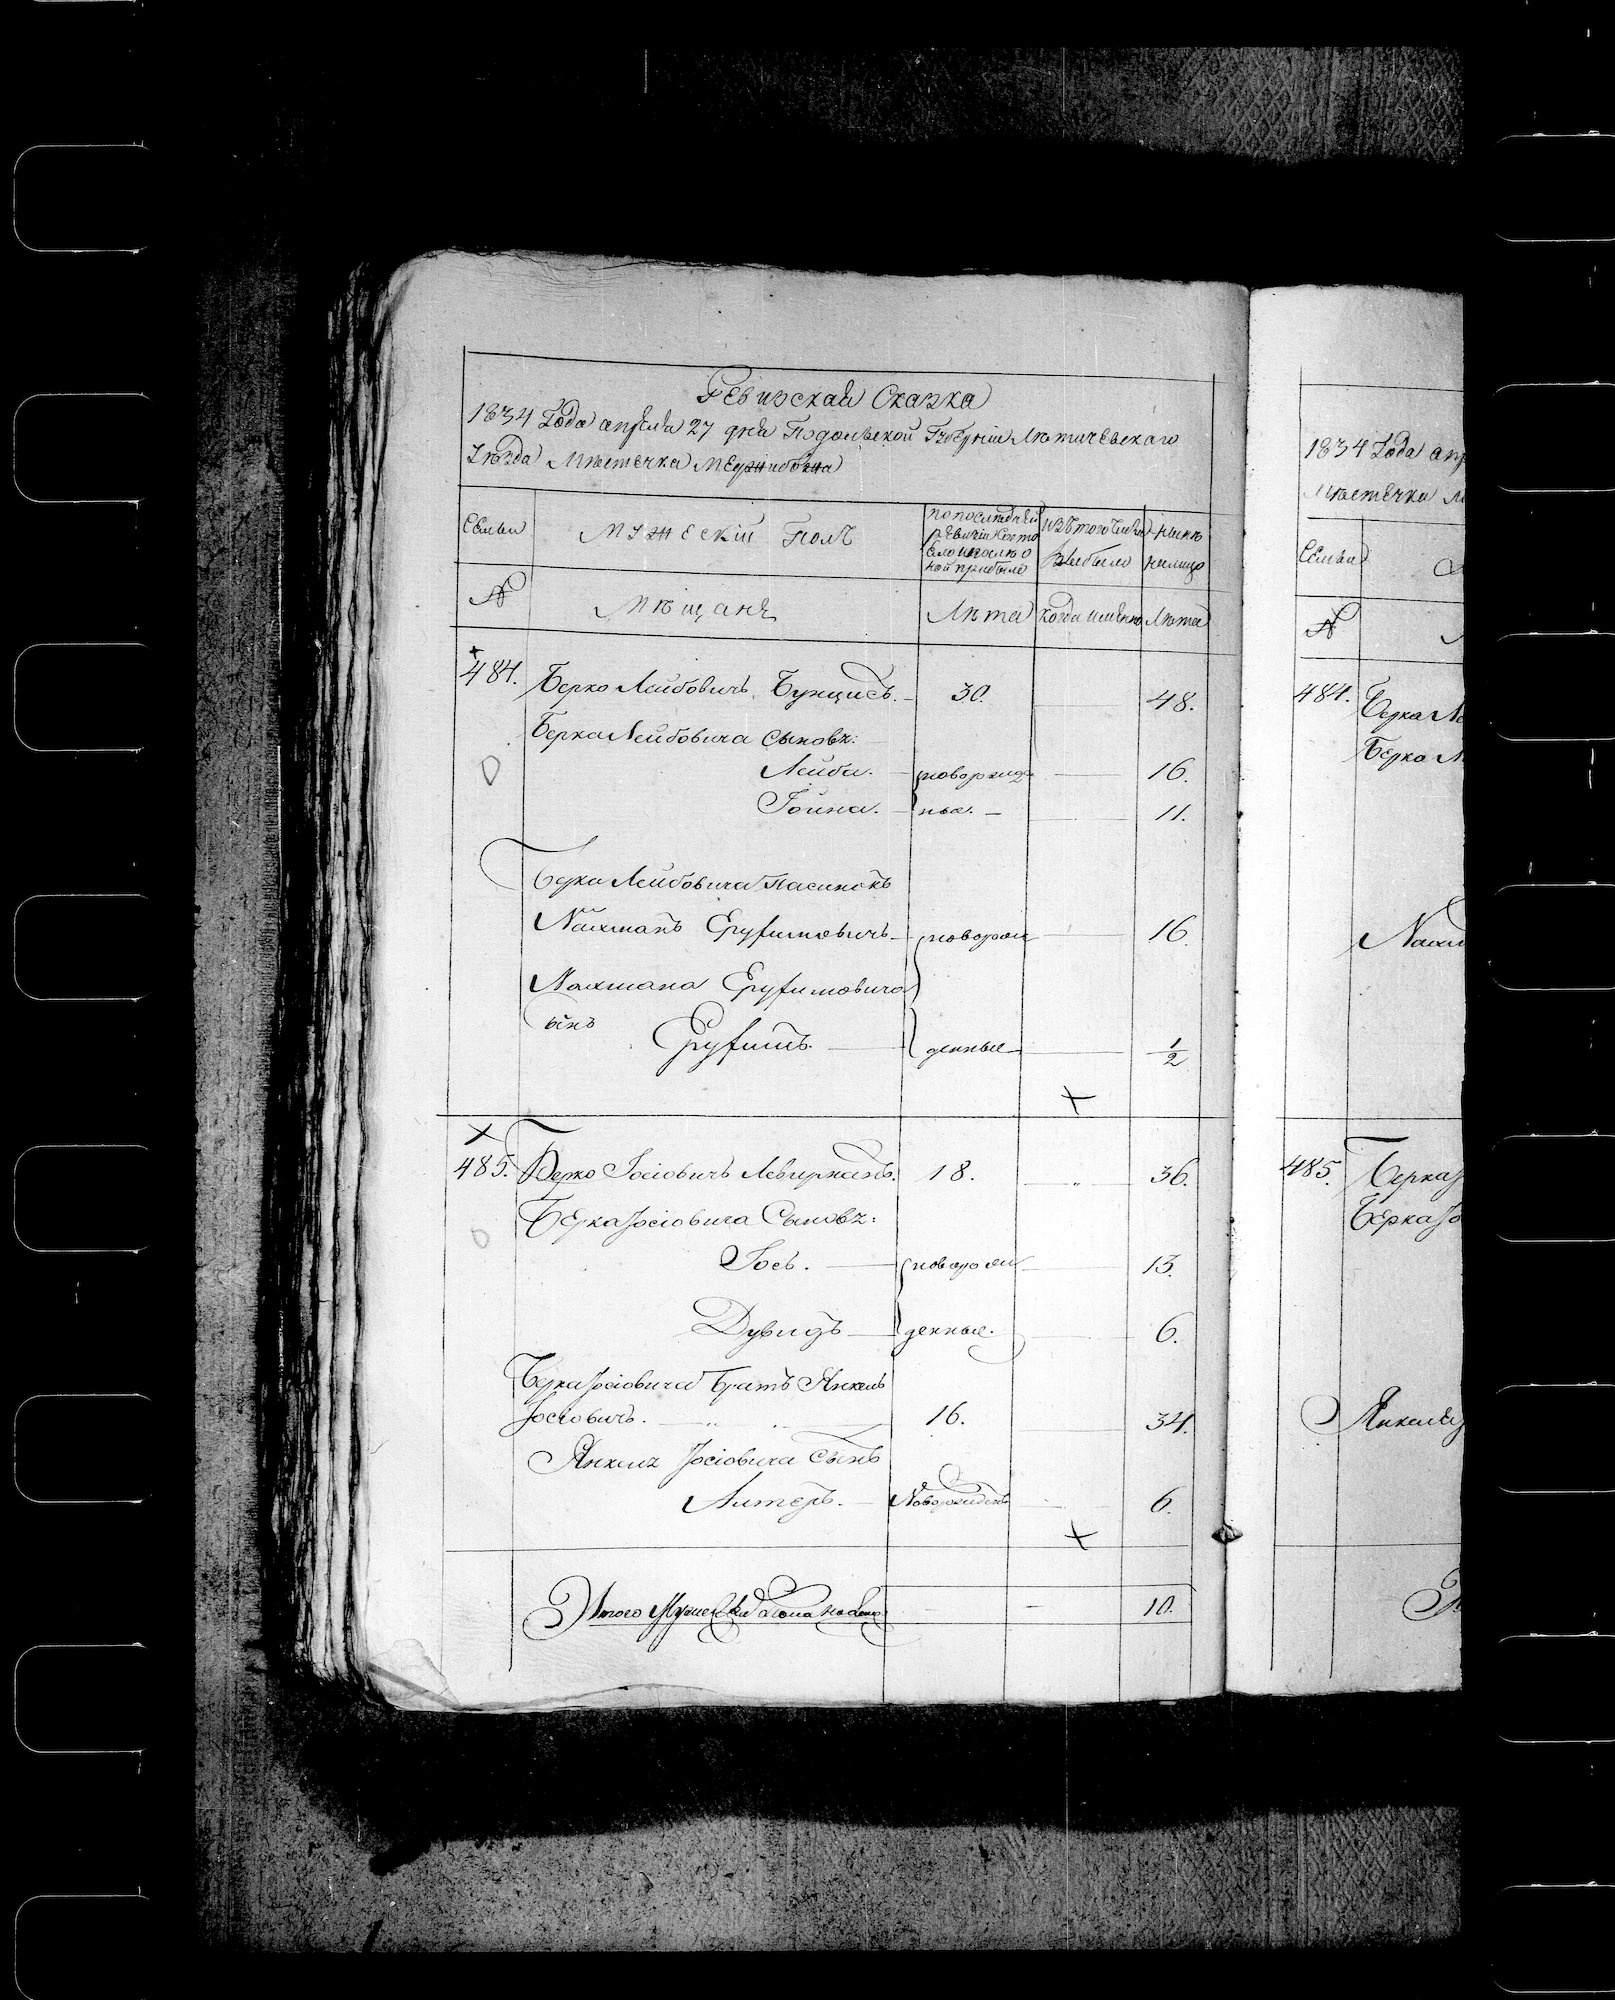 Ревизская Сказка
1834 Года апреля 27 дня Подольской Губерніи Лѣтичевскаго
Уезда Мѣстечка Межибожа
Семьи
Мужескій Полъ
по последней
ревизіи состо
яло и после о
ной прибыло
изъ того числа
выбыло
Ныне
налицо
№
Мѣщанъ
Лѣта
когда именно
Лѣта
484. Берко Лейбовичъ Бунцисъ. 30. 48.
Берка Лейбовича Сыновъ:
Лейба. новорожде 16.
Іойна. ные. 11.
Берка Лейбовича Пасинокъ
Нахманъ Еруфимовичъ новорож 16.
Нахмана Еруфимовича
сынъ
Еруфимъ. денные 1/2
485. Берко Іосіовичъ 18. 36.
Берка Іосіовича Сыновъ:
Іось. новорож 13.
Дувидъ денные. 6.
Берка Іосіовича братъ Янкель
Іосіовичъ. 16. 34.
Янкиля Іосіовича Сынъ
Алтеръ. Новорожденъ 6.
Итого Мужеска пола на лицо 10.
1834 Года апр
Мѣстечка М
Семьи
№
484. Берка Ле
Берка Л
Нахм
485. Берка І
Берка Іо
Янкеля